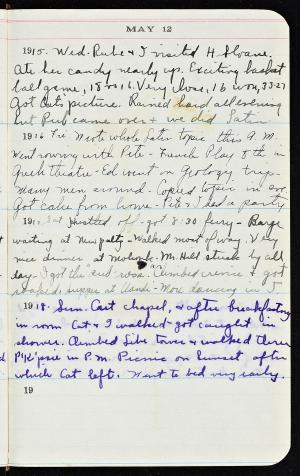 MAY 12
1915. Wed. Rube & I visited H. Sloane.
Ate her candy nearly up. Exciting basket
ball game, 18 vs 16. Very close, 16 won, 33-27
Got Cat's picture. Rained hard all evening
but Peg came over & we did Latin.
1916 Fri Wrote whole Latin topic this A.M.
Went rowing with Pete - French Play 8th in
Greek theatre - Ed went on Geology trip -
Many men around. Copied topic in eve.
Got cake from home - Pete & I had a party
1917 Sat Hustled off - got 8:30 ferry - Barge
waiting at New paltz - Walked most of way. Very
nice dinner at Mohonk. Mr. Hill stuck by all
day. I got the "end" room. Climbed crevice & got
soaked. supper at - More dancing in J
1918. Sun. Cut chapel, & after breakfasting
in room Cat & I walked - got caught in
shower. Climbed Libe tower & walked thru
P'K'psie in P.M. Picnic on Sunset after
which Cat left. Went to bed very early.
19